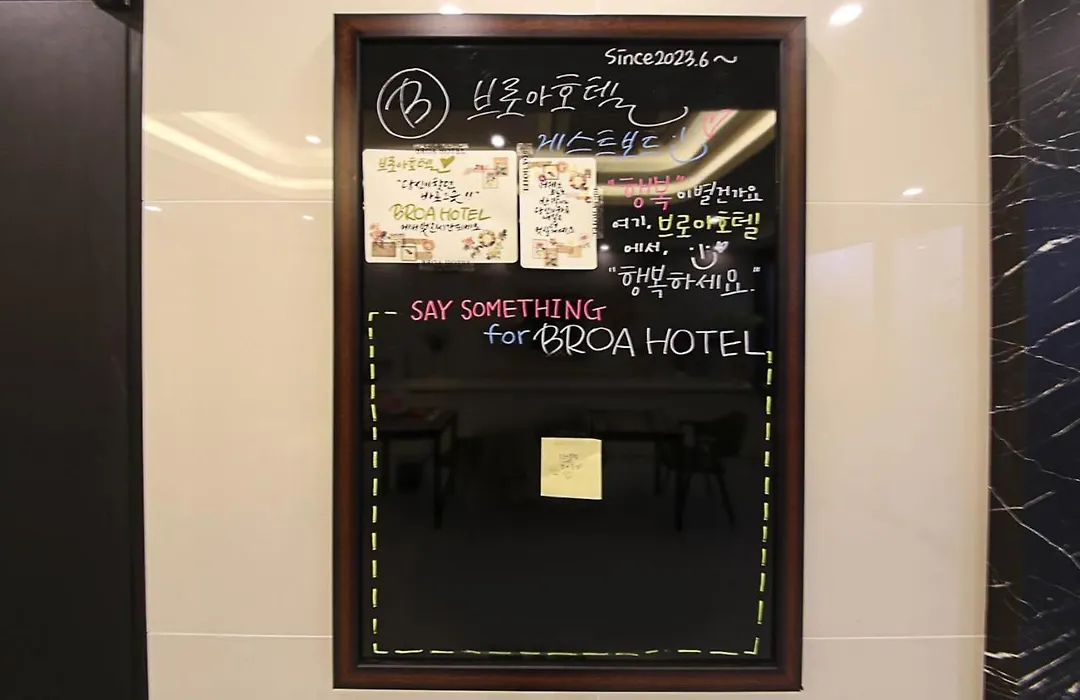 Since2023.6~
B 브로아호텔
게스트보드
브로아호텔
"당신이 찾던
바로 그곳!!"
BROA HOTEL
에서 멋진 시간 되세요
"행복"이 별건가요
여기, 브로아호텔
에서,
"행복하세요."
SAY SOMETHING
for BROA HOTEL